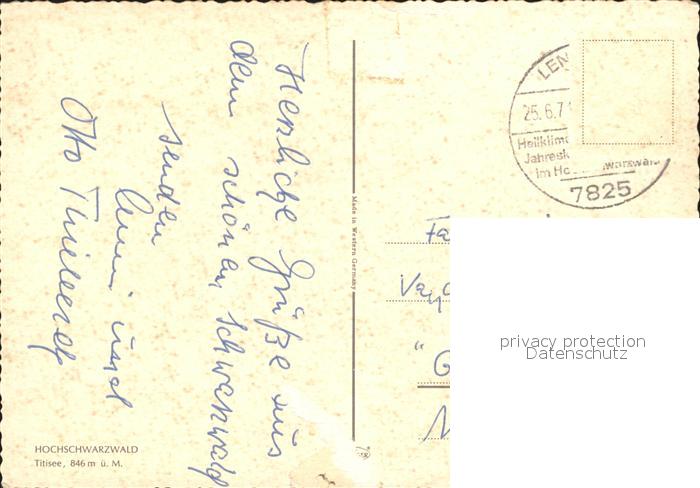 Herzliche Grüße aus
dem schönen Schwarzwald
senden
und
Otto
HOCHSCHWARZWALD
Titisee, 846 m ü. M.
Made in Western Germany
LEN
25.6.7
Heilklima
Jahresk
im Ho warzwald
7825
Fa
"G
N
privacy protection
Datenschutz